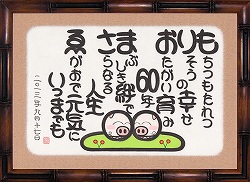 もちつもたれつ
りそうの幸せ
おたがい育み
60年
まぶしき絆で
さらなる
人生
ゑがおで元気に
いつまでも
二〇一三年九月十七日